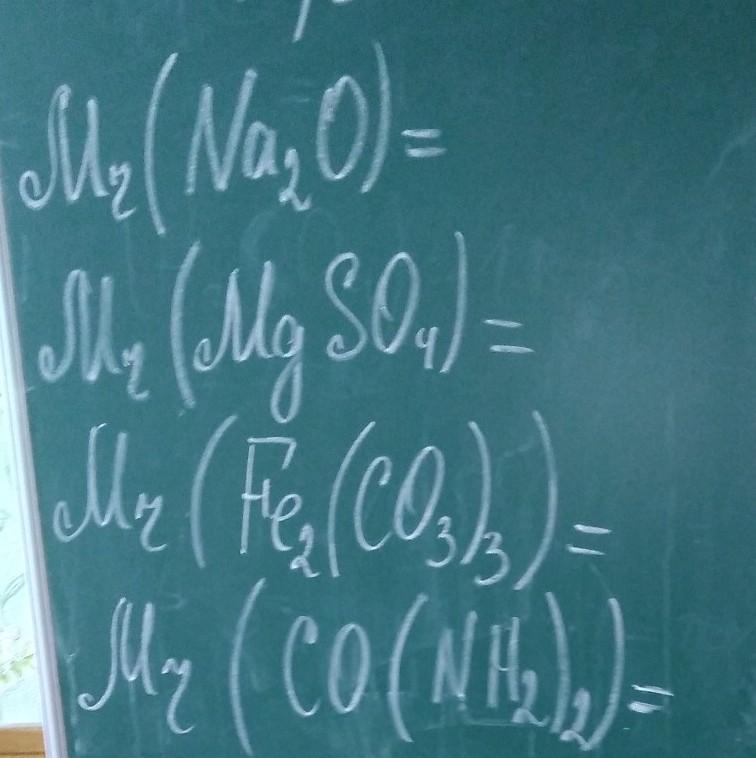 Mr(Na₂O)=
Mr(MgSO₄)=
Mr(Fe₂(CO₃)₃)=
Mr(CO(NH₂)₂)=